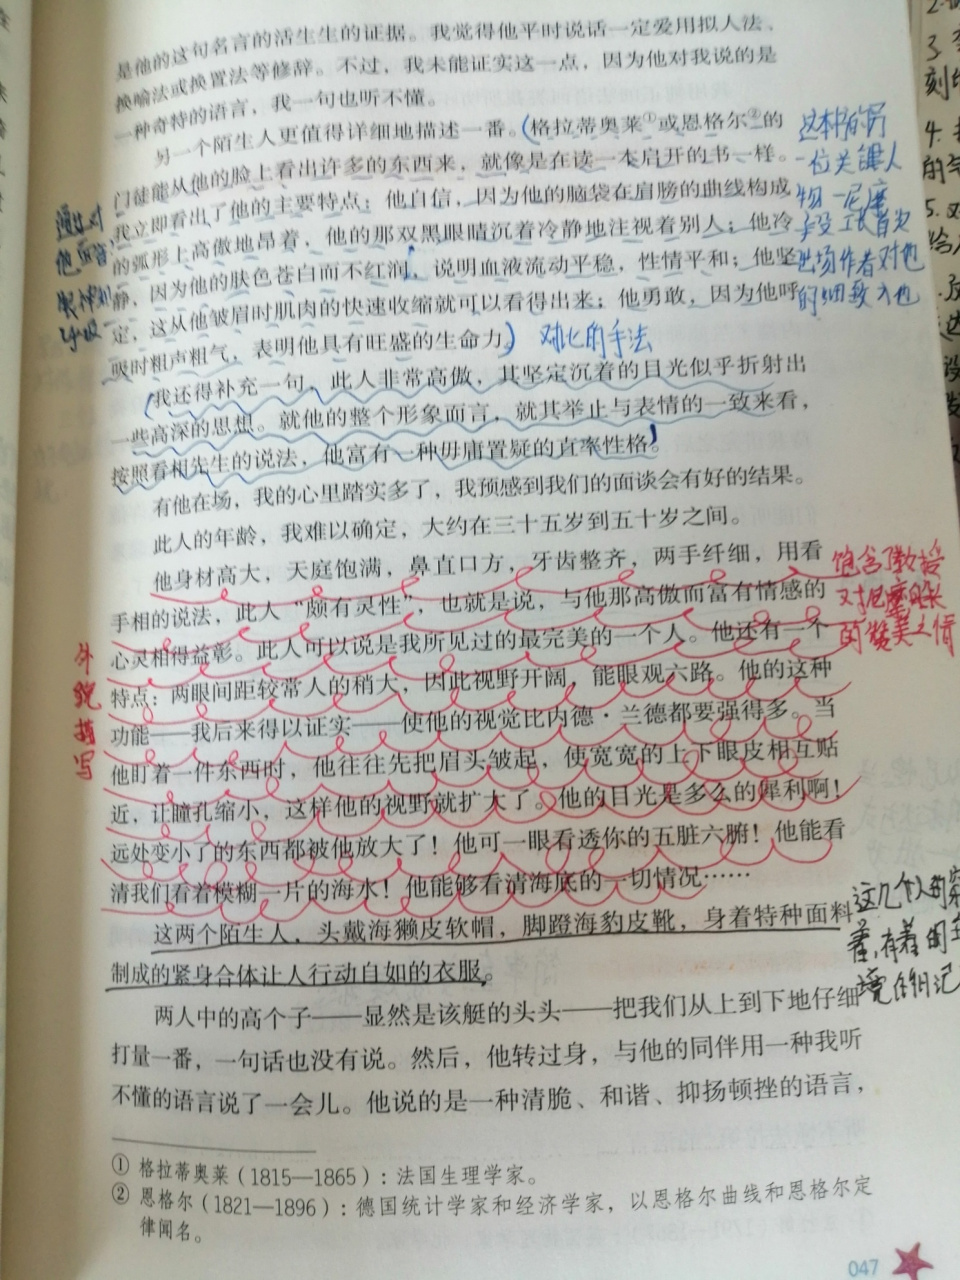 是他的这句名言的活生生的证据。我觉得他平时说话一定爱用拟人法、
换喻法或换置法等修辞。不过，我未能证实这一点，因为他对我说的是
一种奇特的语言，我一句也听不懂。
另一个陌生人更值得详细地描述一番。(格拉蒂奥莱①或恩格尔②的
门徒能从他的脸上看出许多的东西来，就像是在读一本启开的书一样。
我立即看出了他的主要特点：他自信，因为他的脑袋在肩膀的曲线构成
的弧形上高傲地昂着，他的那双黑眼睛沉着冷静地注视着别人；他冷
静，因为他的肤色苍白而不红润，说明血液流动平稳，性情平和；他坚
定，这从他皱眉时肌肉的快速收缩就可以看得出来；他勇敢，因为他呼
吸时粗声粗气，表明他具有旺盛的生命力。) 对比的手法
(我还得补充一句，此人非常高傲，其坚定沉着的目光似乎折射出
一些高深的思想。就他的整个形象而言，就其举止与表情的一致来看，
按照看相先生的说法，他富有一种毋庸置疑的直率性格。)
有他在场，我的心里踏实多了，我预感到我们的面谈会有好的结果。
此人的年龄，我难以确定，大约在三十五岁到五十岁之间。
他身材高大，天庭饱满，鼻直口方，牙齿整齐，两手纤细，用看
手相的说法，此人“颇有灵性”，也就是说，与他那高傲而富有情感的
心灵相得益彰。此人可以说是我所见过的最完美的一个人。他还有一个
特点：两眼间距较常人的稍大，因此视野开阔，能眼观六路。他的这种
功能——我后来得以证实——使他的视觉比内德·兰德都要强得多。当
他盯着一件东西时，他往往先把眉头皱起，使宽宽的上下眼皮相互贴
近，让瞳孔缩小，这样他的视野就扩大了。他的目光是多么的犀利啊！
远处变小了的东西都被他放大了！他可一眼看透你的五脏六腑！他能看
清我们看着模糊一片的海水！他能够看清海底的一切情况……
这两个陌生人，头戴海獭皮软帽，脚蹬海豹皮靴，身着特种面料
制成的紧身合体让人行动自如的衣服。
两人中的高个子——显然是该艇的头头——把我们从上到下地仔细
打量一番，一句话也没有说。然后，他转过身，与他的同伴用一种我听
不懂的语言说了一会儿。他说的是一种清脆、和谐、抑扬顿挫的语言，
① 格拉蒂奥莱（1815—1865）：法国生理学家。
② 恩格尔（1821—1896）：德国统计学家和经济学家，以恩格尔曲线和恩格尔定
律闻名。
047
通过对
这本书的另
一位关键人
物—尼摩
首次
出场作者对他
的细致
饱含教授
对尼摩船长
的赞美之情
外
貌
描
写
这几个人的
着，有着